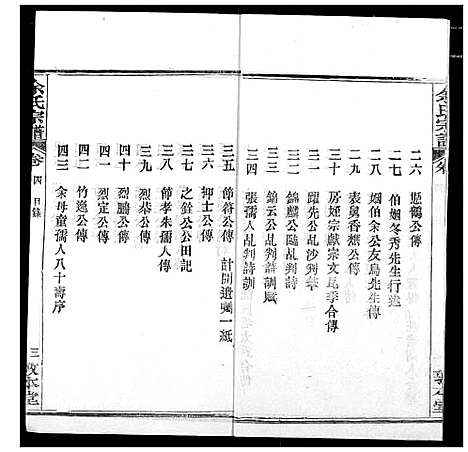 余氏宗譜
二六 懸鶴公傳
二七 伯姻冬秀先生行述
二八 姻伯余公友鳥先生傳
二九 表舅香樵公傳
三十 房姪宗獻宗文昆季合傳
三一 躍先公乩沙判葬
三二 錦麟公臨乩判詩
三三 錦云公乩判詩訓賦
三四 張孺人乩判詩訓
三五 節符公傳 計開遺囑一紙
三六 抑士公傳
三七 之銓公公田記
三八 節孝朱孺人傳
三九 烈棻公傳
四十 烈鵬公傳
四一 烈定公傳
四二 竹逸公傳
四三 余母童孺人八十壽序
余氏宗譜 卷四 目錄 三 敦本堂